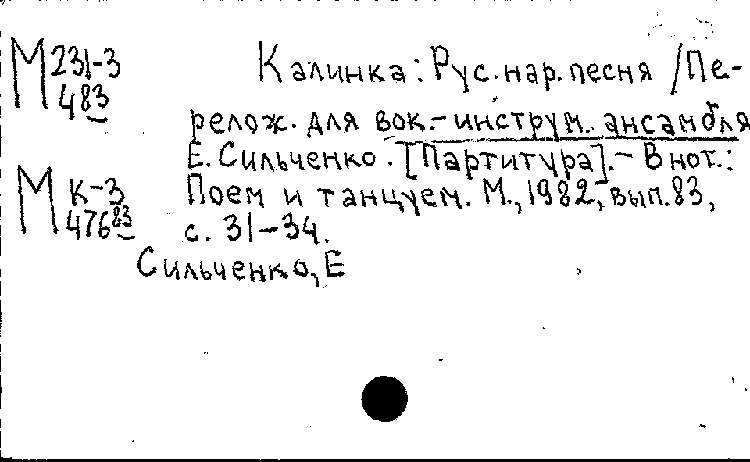 М 231-3
483
Калинка: Рус. нар. песня / Пе-
релож. для вок.-инструм. ансамбля
Е. Сильченко. [Партитура]. - В нот.:
М К-3
476 83
Поем и танцуем. М., 1982, вып. 83,
с. 31-34.
Сильченко, Е